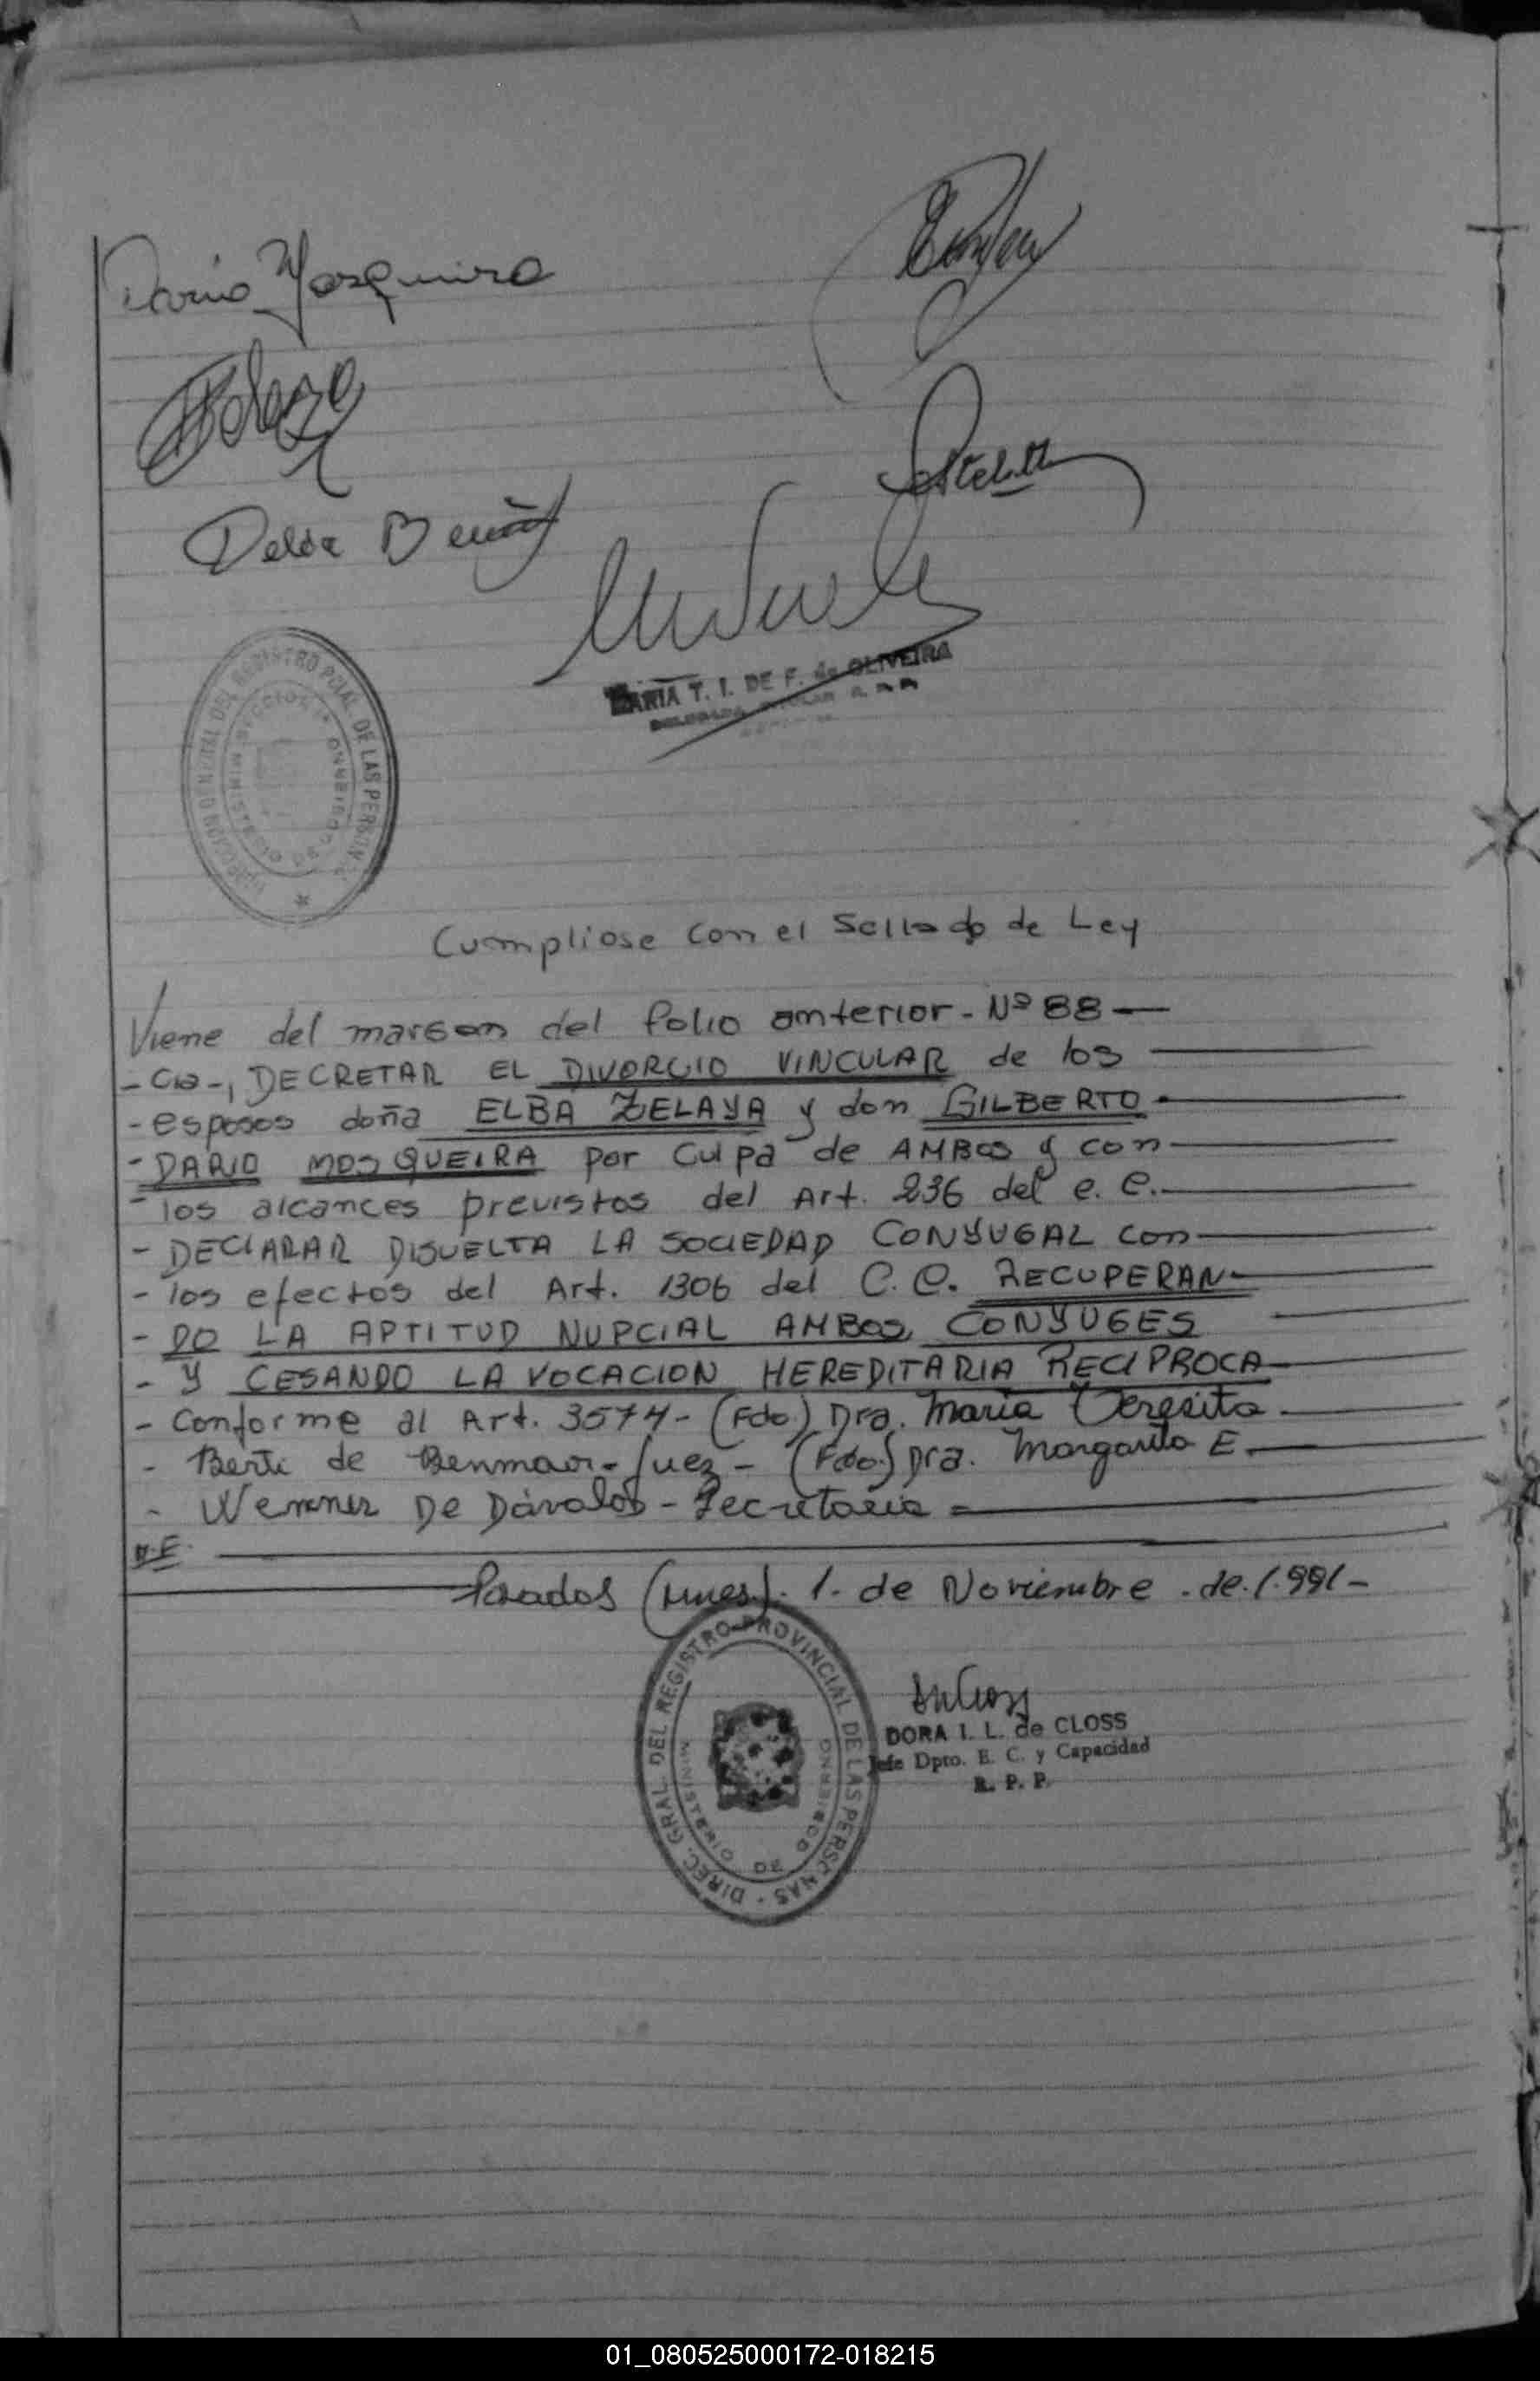 Dario Mosqueira
Delia
MARIA T. I. DE F. de OLIVEIRA
DIRECCION GENERAL DEL REGISTRO PCIAL. DE LAS PERSONAS
MINISTERIO DE GOBIERNO
Cumpliose con el Sellado de Ley
Viene del margen del folio anterior - Nº 88 -
- cia -, DECRETAR EL DIVORCIO VINCULAR de los
- esposos doña ELBA ZELAYA y don GILBERTO
- DARIO MOSQUEIRA por culpa de AMBOS y con
- los alcances previstos del Art. 236 del C. C.
- DECLARAR DISUELTA LA SOCIEDAD CONYUGAL con
- los efectos del Art. 1306 del C. C. RECUPERAN-
- DO LA APTITUD NUPCIAL AMBOS CONYUGES
- Y CESANDO LA VOCACION HEREDITARIA RECIPROCA
- Conforme al Art. 3574 - (Fdo.) Dra. Maria Teresita
- Berti de Benmaor - Juez - (Fdo.) Dra. Margarita E.
- Wemmer De Dávalos - Secretaria =
Posadas (Mnes). 1 - de Noviembre . de . 1.991 -
DIREC. GRAL. DEL REGISTRO PROVINCIAL DE LAS PERSONAS
MINISTERIO DE GOBIERNO
DORA I. L. de CLOSS
Jefe Dpto. E. C. y Capacidad
R. P. P.
01_080525000172-018215